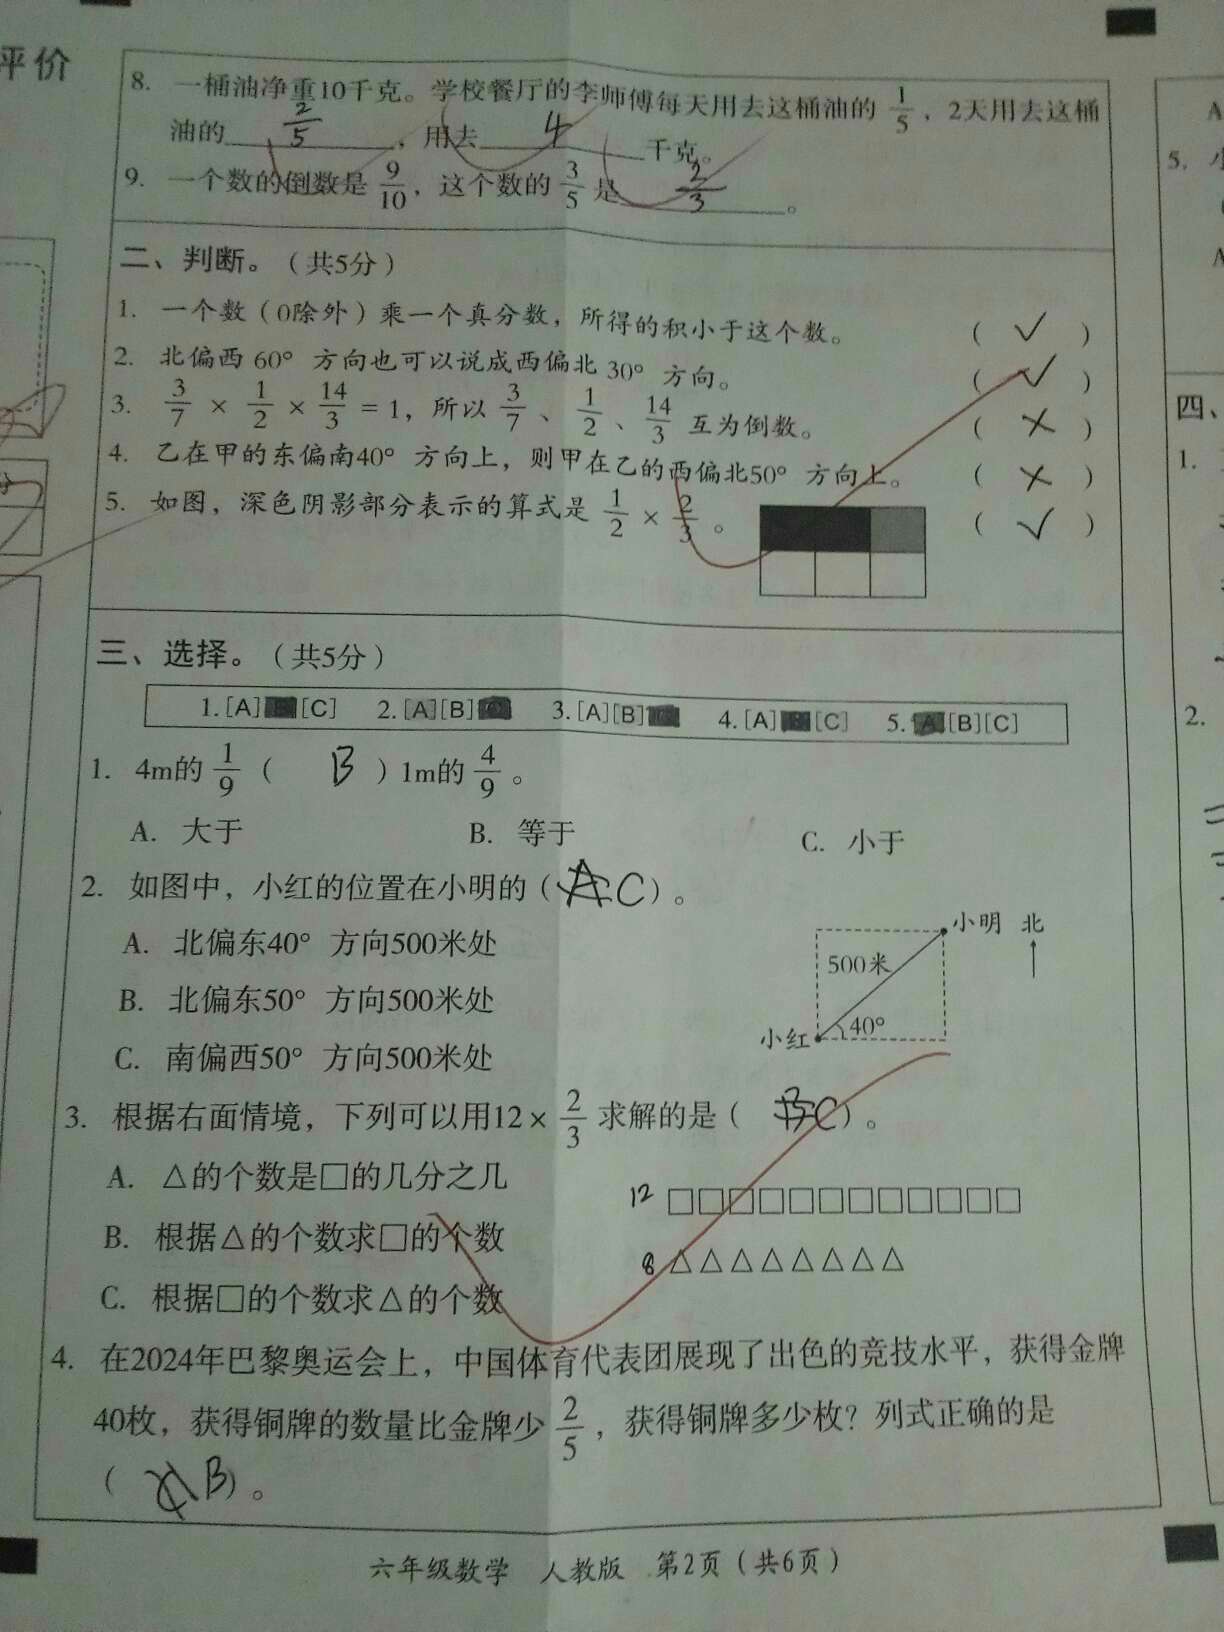 评价
8. 一桶油净重10千克。学校餐厅的李师傅每天用去这桶油的 1/5 ，2天用去这桶
油的 2/5 ，用去 4 千克。
9. 一个数的倒数是 9/10 ，这个数的 3/5 是 2/3 。
二、判断。（共5分）
1. 一个数（0除外）乘一个真分数，所得的积小于这个数。 （ ✓ ）
2. 北偏西 60° 方向也可以说成西偏北 30° 方向。 （ ✓ ）
3. 3/7 × 1/2 × 14/3 = 1，所以 3/7 、 1/2 、 14/3 互为倒数。 （ × ）
4. 乙在甲的东偏南40° 方向上，则甲在乙的西偏北50° 方向上。 （ × ）
5. 如图，深色阴影部分表示的算式是 1/2 × 2/3 。 （ ✓ ）
三、选择。（共5分）
1.[A] [C] 2.[A][B] 3.[A][B] 4.[A] [C] 5.[A][B][C]
1. 4m的 1/9 （ B ）1m的 4/9 。
A. 大于 B. 等于 C. 小于
2. 如图中，小红的位置在小明的（ C）。
A. 北偏东40° 方向500米处
B. 北偏东50° 方向500米处
C. 南偏西50° 方向500米处
小明 北
500米
小红 40°
3. 根据右面情境，下列可以用12 × 2/3 求解的是（ C）。
A. △的个数是□的几分之几
B. 根据△的个数求□的个数
C. 根据□的个数求△的个数
12 □□□□□□□□□□□□
8 △△△△△△△△
4. 在2024年巴黎奥运会上，中国体育代表团展现了出色的竞技水平，获得金牌
40枚，获得铜牌的数量比金牌少 2/5 ，获得铜牌多少枚？列式正确的是
（ B）。
六年级数学 人教版 第2页（共6页）
A
5.
四、
1.
2.